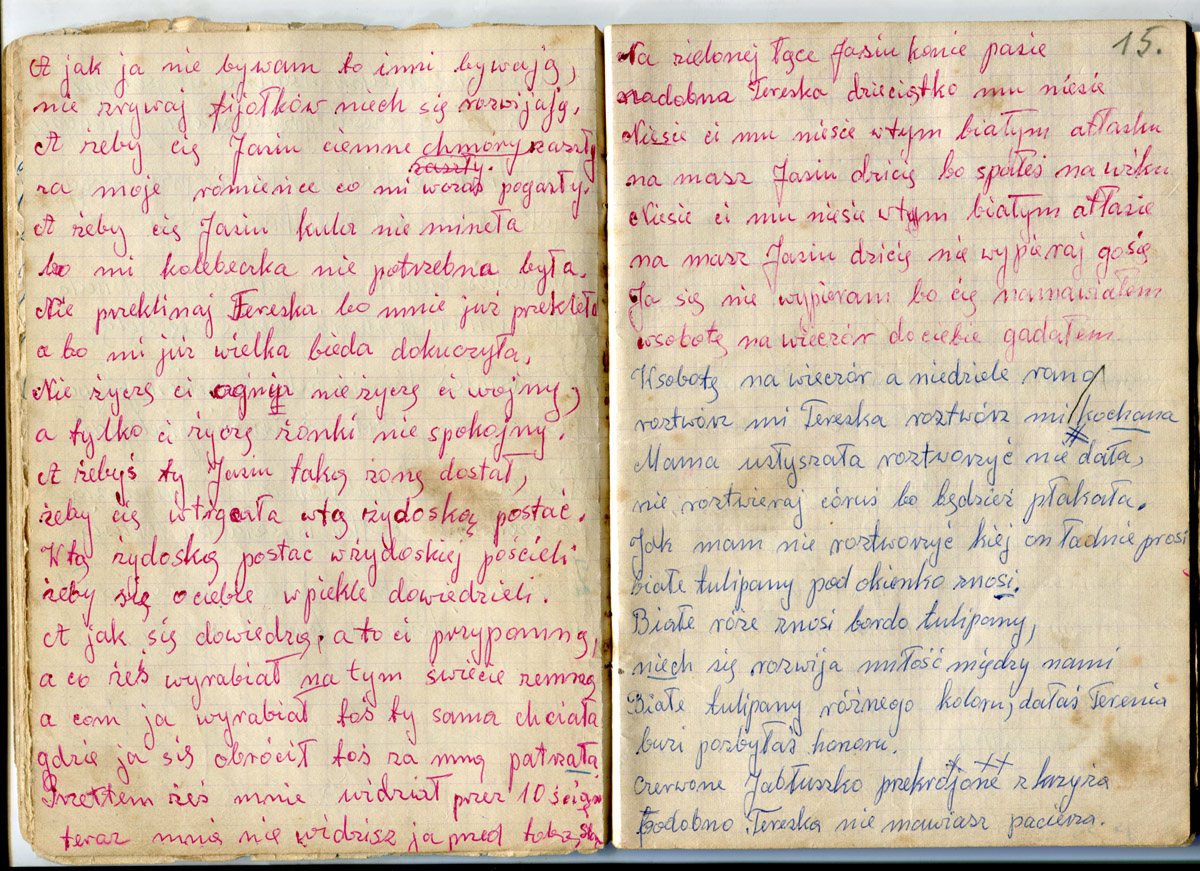 A jak ja nie bywam to inni bywają,
nie zrywaj fijołków niech się rozwijają,
A żeby cię Jasiu ciemne chmóry zaszły
zaszły.
za moje rómieńce co mi wczas pogasły.
A żeby cię Jasiu kula nie mineła
bo mi kolebeczka nie potrzebna była.
Nie przeklinaj Tereska bo mnie już przeklęła
a bo mi już wielka bieda dokuczyła,
Nie życzę ci ognia nie życzę ci wojny,
a tylko ci życzę żonki nie spokojny.
A żebyś ty Jasiu taką zonę dostał,
żeby cię wtrgała wtą żydoską postać.
Wtą żydoską postać wżydoskiej pościeli
żeby się ociebie wpiekle dowiedzieli.
A jak się dowiedzą, a to ci przypomną,
a co żeś wyrabiał na tym świecie zemną
a com ja wyrabiał toś ty sama chciała
gdzie ja się obrócił toś za mną patrzała.
Przettem żeś mnie widział przez 10 ścian
teraz mnie nie widzisz ja przed tobą stą
15.
Na zielonej łące Jasiu konie pasie
nadobna Tereska dzieciątko mu niesie
Niesie ci mu niesie wtym białym atłasku
na masz Jasiu dzicię bo spałeś na wżku
Niesie ci mu niesie wtym białym atłasie
na masz Jasiu dzicię nie wypieraj gosię
Ja się nie wypieram bo cię namawiałem
wsobotę na wieczór do ciebie gadałem.
Wsobotę na wieczór a niedziele rano
roztwórz mi Tereska roztwórz mi kochana
Mama usłyszała roztworzyć nie dała,
nie roztwieraj córuś bo będzież płakała.
Jak mam nie roztworzyć kiéj on ładnie prosi
białe tulipany pod okienko znosi.
Białe róże znosi bordo tulipany,
niech się rozwija miłość między nami
Białe tulipany różnego koloru, dałaś Terenia
buzi pozbyłaś honoru.
czerwone Jabłuszko prekrojone z krzyża
podobno Tereska nie mawiasz pacierza.